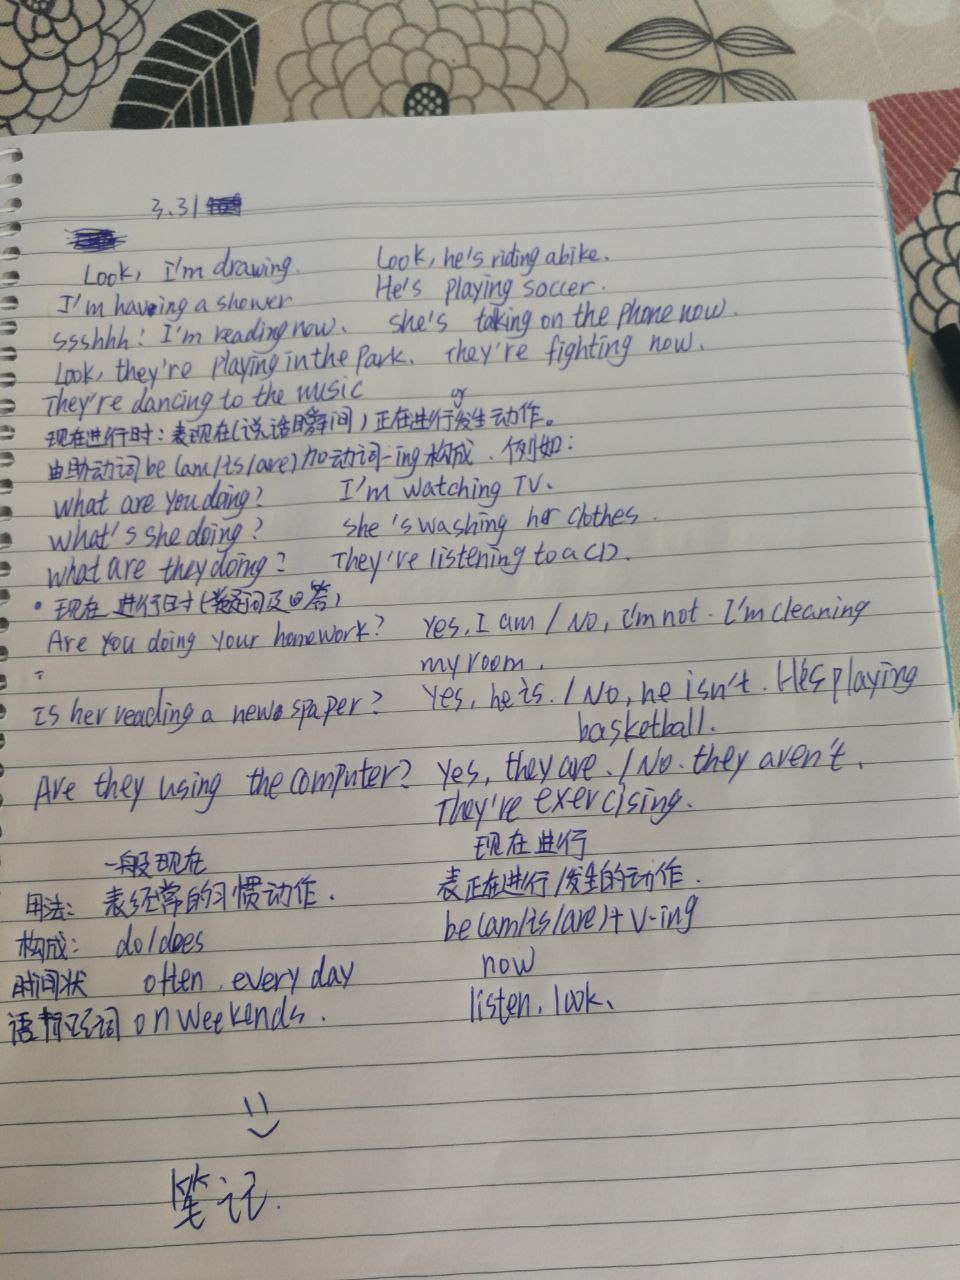 3.31
Look, I'm drawing. Look, he's riding a bike.
I'm having a shower He's playing soccer.
ssshhh! I'm reading now. she's talking on the phone now.
Look, they're playing in the park. They're fighting now.
They're dancing to the music
or
现在进行时：表现在(说话瞬间)正在进行发生动作。
由助动词be(am/is/are)加动词-ing构成．例如：
what are you doing? I'm watching TV.
what's she doing? she's washing her clothes.
what are they doing? They're listening to a CD.
• 现在进行时(疑问及回答)
Are you doing your homework? Yes, I am / No, I'm not. I'm cleaning
my room.
is her reading a newspaper? Yes, he is. / No, he isn't. He's playing
basketball.
Are they using the computer? Yes, they are. / No. they aren't.
They're exercising.
一般现在 现在进行
用法: 表经常的习惯动作. 表正在进行/发生的动作.
构成: do/does be(am/is/are)+V-ing
时间状 often, every day now
语 词 on weekends. listen, look、
笔记.